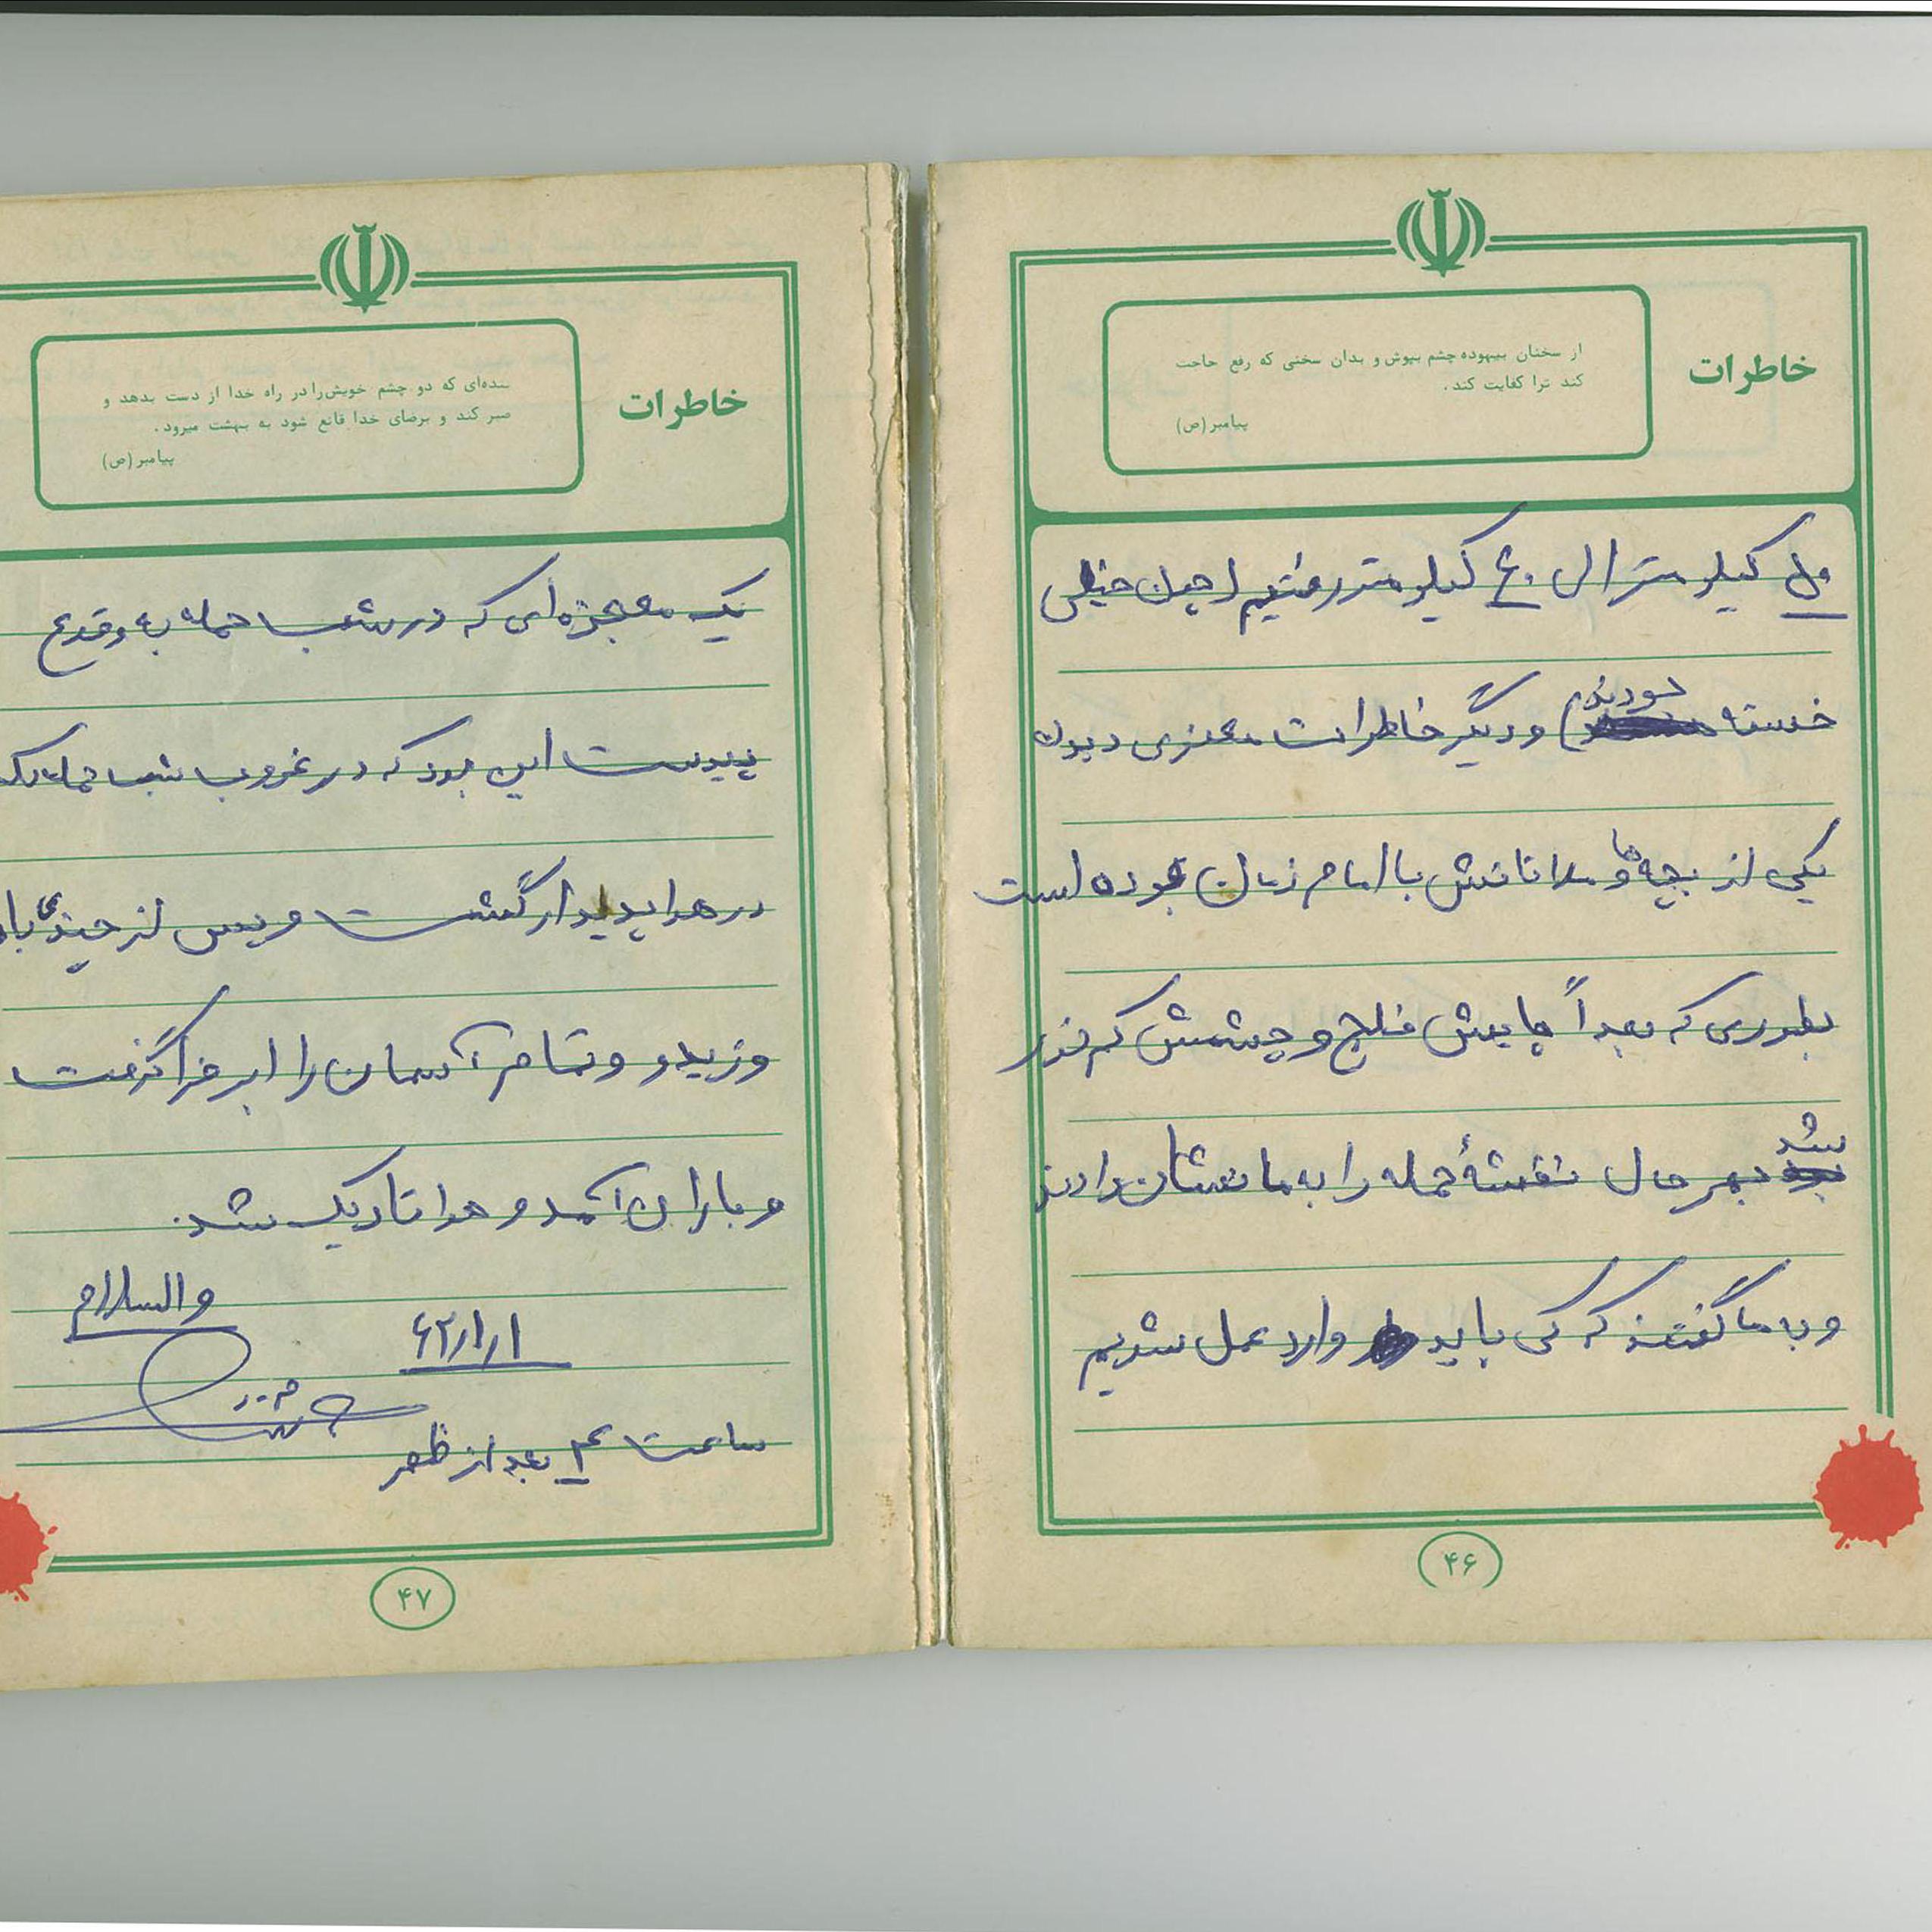 خاطرات
از سخنان بیهوده چشم بپوش و بدان سخنی که رفع حاجت
کند ترا کفایت کند.
پیامبر (ص)
کیلومتر الی ۴۰ کیلومتر رفتیم خیلی
خسته بودند) و دیگر خاطرات معنوی دیدن
یکی از بچه‌ها و ملاقاتش با امام زمان بوده است
بطوری که بعداً پایش فلج و چشمش کم نور
شد بهر حال نقشهٔ حمله را به ما نشان دادند
و به ما گفتند که کی باید وارد عمل شدیم
۴۶
خاطرات
بنده‌ای که دو چشم خویش را در راه خدا از دست بدهد و
صبر کند و برضای خدا قانع شود به بهشت میرود.
پیامبر (ص)
یک معجزه‌ای که در شب حمله به وقوع
پیوست این بود که در غروب شب حمله
در هوا پدیدار گشت و پس از چندی باد
وزید و و تمام آسمان را ابر فرا گرفت
و باران آمد و هوا تاریک شد.
والسلام
۶۲/۱/۱
ساعت ۴ بعد از ظهر
۴۷